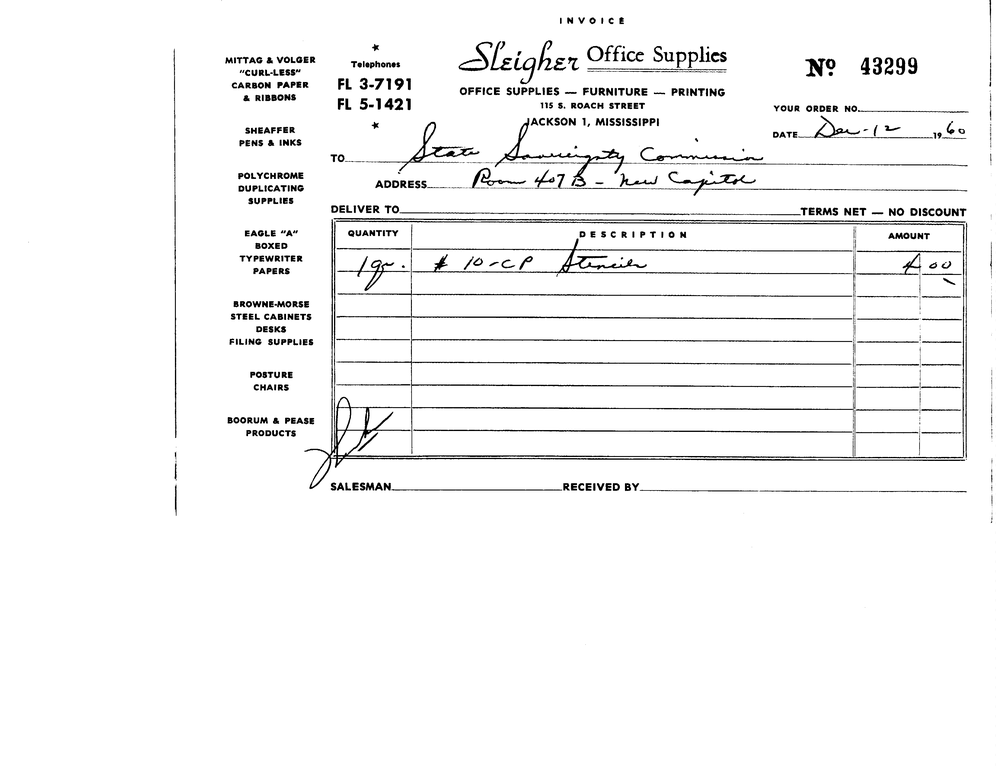 INVOICE
Sleigher Office Supplies
OFFICE SUPPLIES — FURNITURE — PRINTING
115 S. ROACH STREET
JACKSON 1, MISSISSIPPI
★
Telephones
FL 3-7191
FL 5-1421
★
Nº 43299
YOUR ORDER NO.
DATE Dec-12 1960
TO State Sovereignty Commission
ADDRESS Room 407B - New Capitol
DELIVER TO TERMS NET — NO DISCOUNT
QUANTITY DESCRIPTION AMOUNT
1 qr. # 10-CP Stencils 4 00
SALESMAN RECEIVED BY
MITTAG & VOLGER
"CURL-LESS"
CARBON PAPER
& RIBBONS
SHEAFFER
PENS & INKS
POLYCHROME
DUPLICATING
SUPPLIES
EAGLE "A"
BOXED
TYPEWRITER
PAPERS
BROWNE-MORSE
STEEL CABINETS
DESKS
FILING SUPPLIES
POSTURE
CHAIRS
BOORUM & PEASE
PRODUCTS